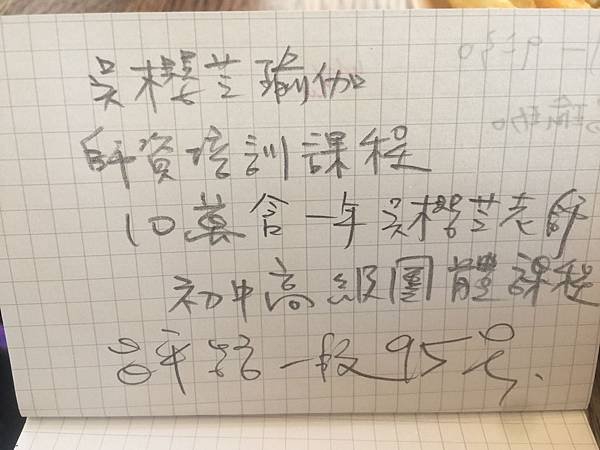 吳櫻芸瑜伽
師資培訓課程
10萬含一年吳櫻芸老師
初中高級團體課程
昌平路一段95号.